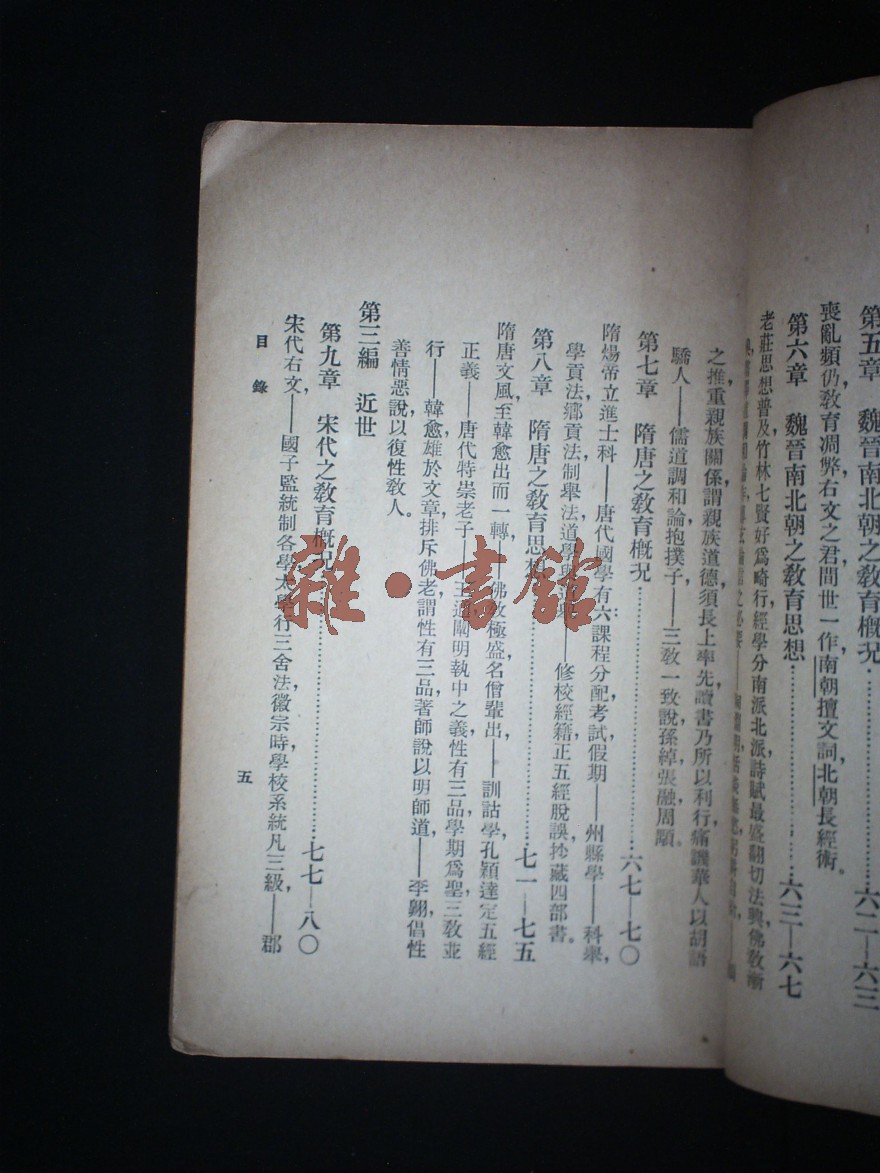 第五章　魏晉南北朝之敎育概況………六二—六三
喪亂頻仍敎育凋弊右文之君間世一作南朝擅文詞北朝長經術。
第六章　魏晉南北朝之敎育思想………六三—六七
老莊思想普及竹林七賢好爲畸行，經學分南派北派詩賦最盛翻切法興佛敎漸
之推重親族關係謂親族道德須長上率先讀書乃所以利行痛譏華人以胡語
驕人——儒道調和論抱撲子——三敎一致說孫綽張融周顒。
第七章　隋唐之敎育槪況………六七—七〇
隋煬帝立進士科——唐代國學有六，課程分配考試假期——州縣學——科舉，
學貢法鄉貢法制舉法道學——修校經籍正五經脫誤抄藏四部書。
第八章　隋唐之敎育思想………七一—七五
隋唐文風至韓愈出而一轉——佛敎極盛名僧輩出——訓詁學孔穎達定五經
正義——唐代特崇老子——王通闡明執中之義性有三品，學期爲聖三敎並
行——韓愈雄於文章，排斥佛老謂性有三品，著師說以明師道——李翺倡性
善情惡說以復性敎人。
第三編　近世
第九章　宋代之敎育槪況………七七—八〇
宋代右文——國子監統制各學太學行三舍法，徽宗時學校系統凡三級，——郡
目錄
五
雜·書館